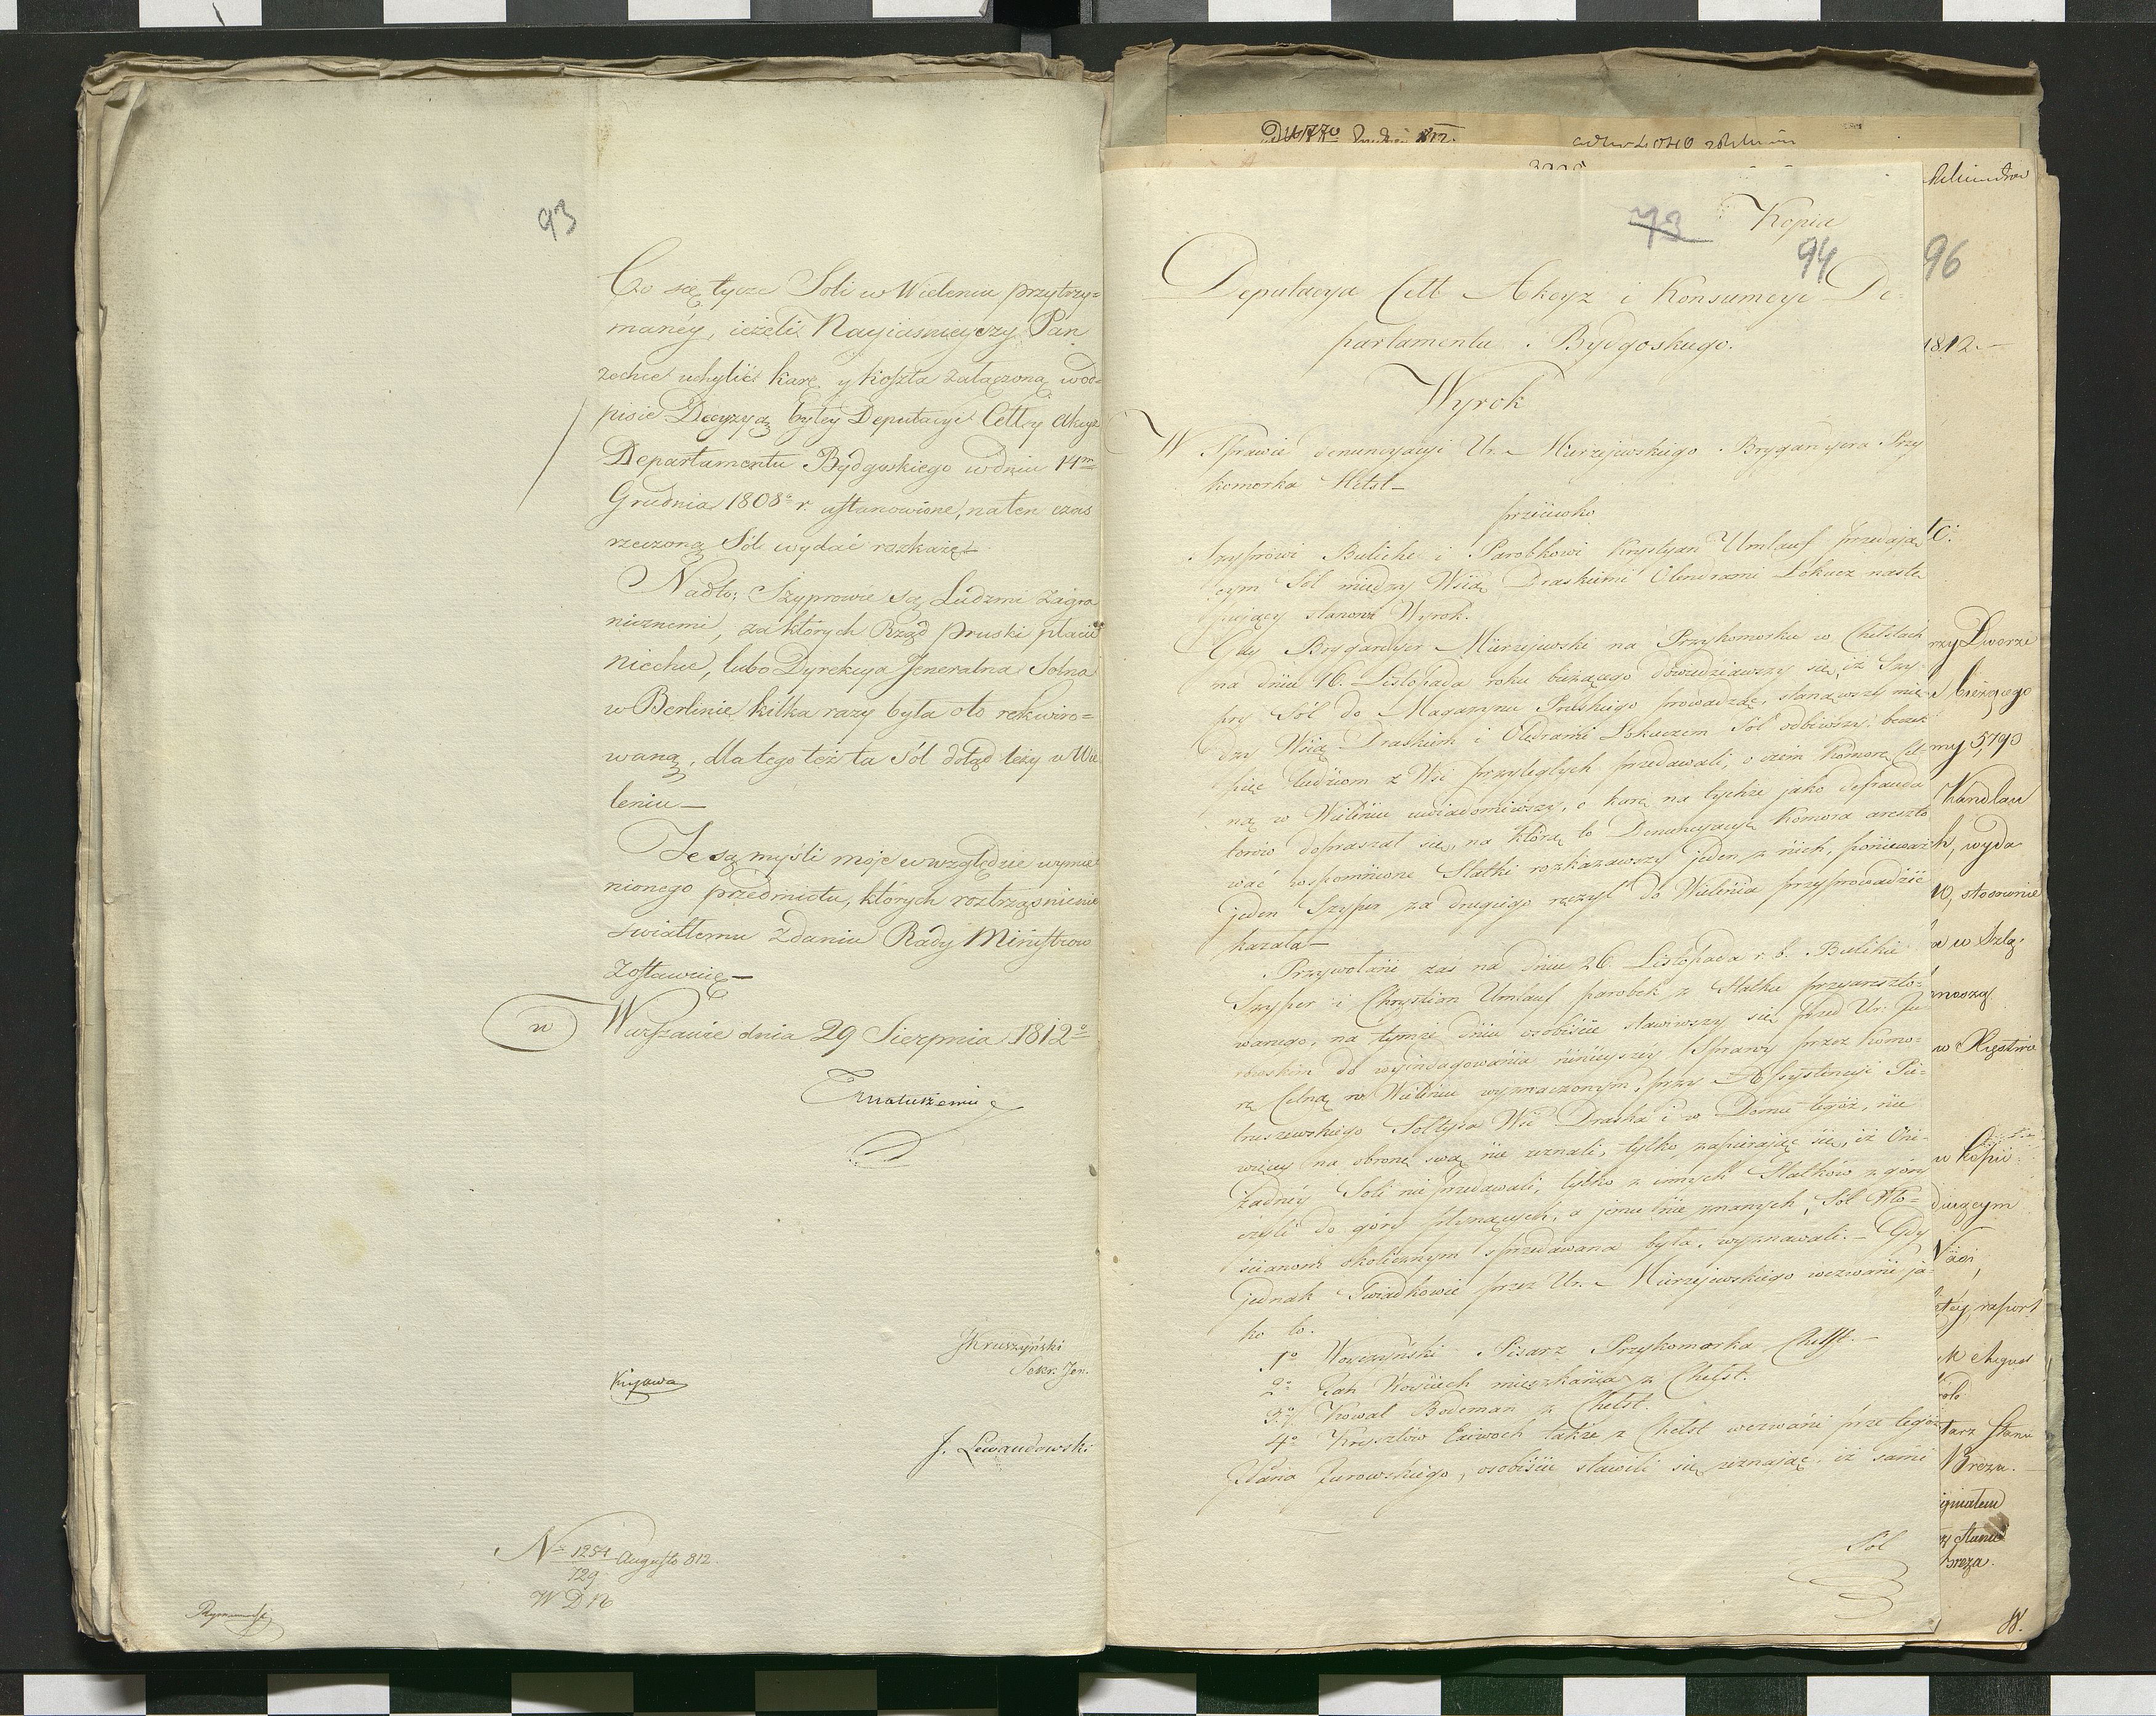 93
Co się tycze Soli w Wieleniu przytrzy=
manéy, ieżeli Nayiaśnieyszy Pan
zechce uchylić karę y koszta załączoną w od=
pisie Decyzyą byłey Deputacyi Celley Akcyz
Departamentu Bydgoskiego w dniu 14m
Grudnia 1808o r. ustanowione, na ten czas
rzeczoną Sól wydać rozkażę—
Nadto; Szyprowie są Ludzmi zagra
nicznemi, za których Rząd Pruski płacić
niechce, lubo Dyrekcya Jeneralna Solna
w Berlinie kilka razy była oto rekwiro=
waną, dla tego też ta Sól dotąd leży w Wie
leniu—
Te są myśli moje w względzie wymie
nionego przedmiotu, których roztrząśnienie
światłemu Zdaniu Rady Ministrow
zostawuię—
w Warszawie dnia 29 Sierpnia 1812o
TMatuszewic
JKruszyński
Sekr. Jen.
Kujawa
J. Lewandowski
No 1254 Augusto 812.
129
W D 16
73 Kopia
94
Deputacya Cell Akcyz i Konsumcyi De=
partamentu Bydgoskiego.
Wyrok
W Sprawie denuncyacyi Ur. Mierzejewskiego Brygardyera Przy
komorka Hełst—
przeciwko
Szyprowi Bulicke i Parobkowi Krystyan Umlauf przedają
cym Sól między Wsią Draskiemi Olendrami Lokacz nastę
pujący stanowi Wyrok.
Gdy Brygardyer Mierzejewski na Przykomorku w Chełstach
na dniu 16. Listopada roku bieżącego dowiedziawszy się, iż Szy-
pry Sól do Magazynu Pruskiego prowadząc, stanąwszy mię
dzy Wsią Draskiem i Olędrami Lokaczem Sól odbiwszy beczek
pięć ludziom z Wsi przyległych przedawali, o czém Komorę Cel-
ną w Wieleniu uwiadomiwszy, o karę na tychże jako defrauda
torów dopraszał się, na którą to Denuncyacyą Komora areszto
wać wspomnione Statki rozkazawszy jeden z nich, ponieważ
jeden Szyper za drugiego ręczył do Wielenia przyprowadzić
kazała—
Przywołani zaś na dniu 26. Listopada r. b. Bulike
Szyper i Chrystian Umlauf parobek z Statku przyareszto-
wanego, na tymże dniu osobiście stawiwszy się przed Ur. Żu
rowskim do wyindagowania ninieyszéy Sprawy przez Komo-
rę Celną w Wieleniu wyznaczonym, przy Assystencyi Pie-
truszewskiego Sołtysa Wsi Draska i w Domu tegoż, nic
więcey na obronę swą nie zeznali, tylko zapierając się, iż Oni
żadnéy Soli nie przedawali, tylko z innych Statków z góry
czyli do góry płynących, a jemu nie znanych, Sól Wło-
ścianom okolicznym sprzedawana była, wyznawali.— Gdy
jednak Świadkowie przez Ur. Mierzejewskiego wezwani ja-
ko to.
1o Woyczyński Pisarz Przykomorka Chełst.—
2o Jan Woyciech mieszkania z Chełst.
3o/ Kowal Bodeman z Chełst.
4o Krysztów Exiwoch także z Chełst wezwani prze tegoż
Pana Żurowskiego, osobiście stawili się zeznając, iż sami
Sól
96
1812.—
to:
rzy Dworze
bieżącego
my 5,790
Kandlau
h, wyda
10, stosownie
a w Szlą:
w Xięstwie
w Kopii
dującym
raport
tarz Stanu
Breza.
Stanu
Breza.